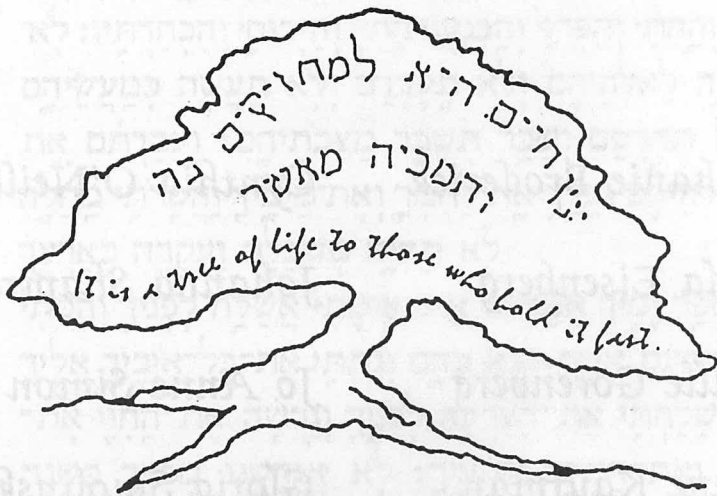 עץ חיים היא למחזיקים בה
ותמכיה מאשר
It is a tree of life to those who hold it fast.